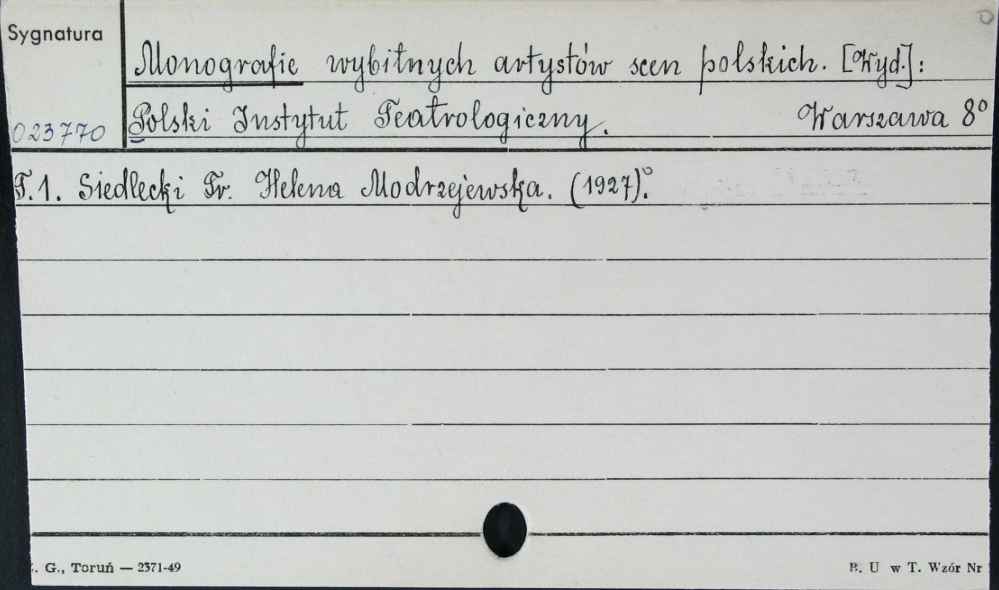 Sygnatura
Monografie wybitnych artystów scen polskich. [Wyd.]:
023770 Polski Instytut Teatrologiczny. Warszawa 8°
T.1. Siedlecki Fr. Helena Modrzejewska. (1927).°
. G., Toruń — 2371-49 B. U w T. Wzór Nr